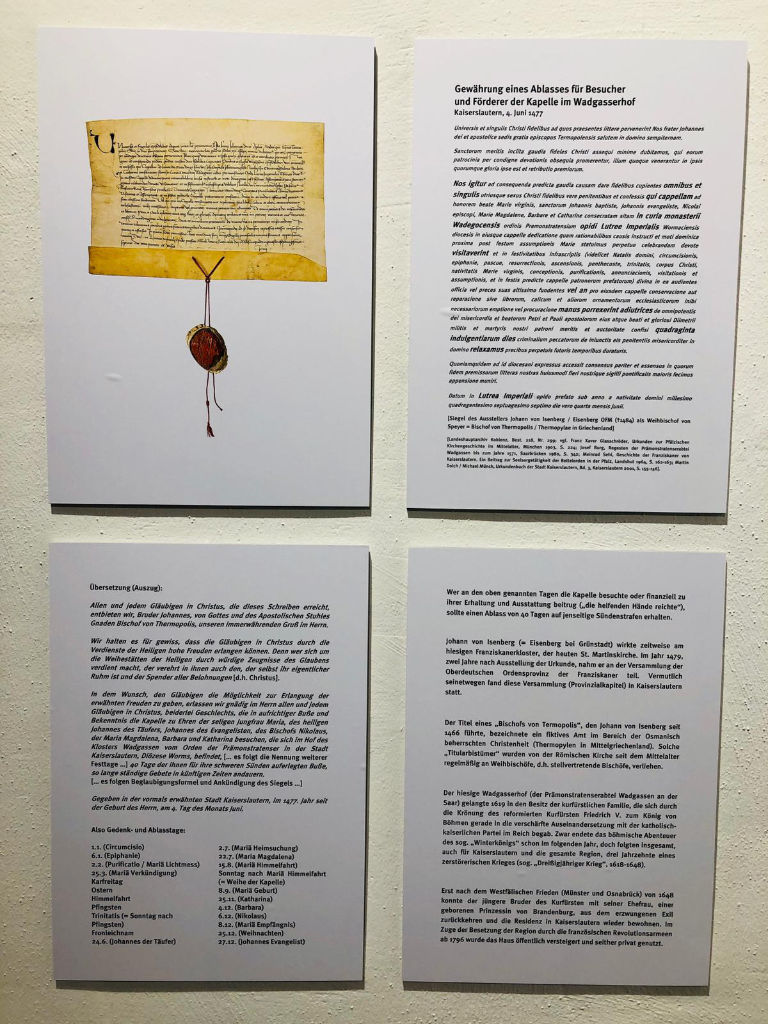 Gewährung eines Ablasses für Besucher
und Förderer der Kapelle im Wadgasserhof
Kaiserslautern, 4. Juni 1477
Universis et singulis Christi fidelibus ad quos praesentes littere pervenerint Nos frater Johannes
dei et apostolice sedis gratia episcopus Termopolensis salutem in domino sempiternam.
Sanctorum meritis inclita gaudia fideles Christi assequi minime dubitamus, qui eorum
patrocinia per condigne devotionis obsequia promerentur, illum quoque venerantur in ipsis
quorumque gloria ipse est et retributio premiorum.
Nos igitur ad consequenda predicta gaudia causam dare fidelibus cupientes omnibus et
singulis utriesque sexus Christi fidelibus vere penitentibus et confessis qui cappellam ad
honorem beate Marie virginis, sanctorum Johannis baptiste, Johannis evangeliste, Nicolai
episcopi, Marie Magdalene, Barbare et Catharine consecratam sitam in curia monasterii
Wadegocensis ordinis Premonstratensium opidi Lutree Imperialis Wormaciensis
diocesis in eiusque cappelle dedicatione quam rationabilibus causis instructi et moti dominica
proxima post festum assumptionis Marie statuimus perpetuo celebrandam devote
visitaverint et in festivitatibus infrascriptis (videlicet Natalis domini, circumcisionis,
epiphanie, pascue, resurrectionis, ascensionis, penthecoste, trinitatis, corpus Christi,
nativitatis Marie virginis, conceptionis, purificationis, annunciacionis, visitationis et
assumptionis, et in festis predicte cappelle patronorum prefatorum) divina in ea audientes
officia vel preces suas altissimo fundentes vel an pro eiusdem cappelle conservacione aut
reparacione sive librorum, calicum et aliorum ornamentorum ecclesiasticorum inibi
necessariorum emptione vel procuracione manus porrexerint adiutrices de omnipotentis
dei misericordia et beatorum Petri et Pauli apostolorum eius atque beati et gloriosi Dümetrii
militis et martyris nostri patroni meritis et auctoritate confisi quadraginta
indulgentiarum dies criminalium peccatorum de iniunctis eis penitentiis misericorditer in
domino relaxamus precibus perpetuis futoris temporibus duraturis.
Quoniamquidem ad id diocesani expressus accessit consensus pariter et assensus in quorum
fidem premissorum litteras nostras huiusmodi fieri nostrique sigilli pontificalis maioris fecimus
appensione muniri.
Datum in Lutrea Imperiali opido prefato sub anno a nativitate domini millesimo
quadragentesimo septuagesimo septimo die vero quarta mensis Junii.
[Siegel des Ausstellers Johann von Isenberg / Eisenberg OFM (†1484) als Weihbischof von
Speyer = Bischof von Thermopolis / Thermopylae in Griechenland]
[Landeshauptarchiv Koblenz, Best. 218, Nr. 299; vgl. Franz Xaver Glasschröder, Urkunden zur Pfälzischen
Kirchengeschichte im Mittelalter, München 1903, S. 224; Josef Burg, Regesten der Prämonstratenserabtei
Wadgassen bis zum Jahre 1571, Saarbrücken 1980, S. 342; Meinrad Sehi, Geschichte der Franziskaner von
Kaiserslautern. Ein Beitrag zur Seelsorgetätigkeit der Bettelorden in der Pfalz, Landshut 1964, S. 162-163; Martin
Dolch / Michael Münch, Urkundenbuch der Stadt Kaiserslautern, Bd. 3, Kaiserslautern 2001, S. 155-156].
Übersetzung (Auszug):
Allen und jedem Gläubigen in Christus, die dieses Schreiben erreicht,
entbieten wir, Bruder Johannes, von Gottes und des Apostolischen Stuhles
Gnaden Bischof von Thermopolis, unseren immerwährenden Gruß im Herrn.
Wir halten es für gewiss, dass die Gläubigen in Christus durch die
Verdienste der Heiligen hohe Freuden erlangen können. Denn wer sich um
die Weihestätten der Heiligen durch würdige Zeugnisse des Glaubens
verdient macht, der verehrt in ihnen auch den, der selbst ihr eigentlicher
Ruhm ist und der Spender aller Belohnungen [d.h. Christus].
In dem Wunsch, den Gläubigen die Möglichkeit zur Erlangung der
erwähnten Freuden zu geben, erlassen wir gnädig im Herrn allen und jedem
Gläubigen in Christus, beiderlei Geschlechts, die in aufrichtiger Buße und
Bekenntnis die Kapelle zu Ehren der seligen Jungfrau Maria, des heiligen
Johannes des Täufers, Johannes des Evangelisten, des Bischofs Nikolaus,
der Maria Magdalena, Barbara und Katharina besuchen, die sich im Hof des
Klosters Wadgassen vom Orden der Prämonstratenser in der Stadt
Kaiserslautern, Diözese Worms, befindet, [... es folgt die Nennung weiterer
Festtage ...] 40 Tage der ihnen für ihre schweren Sünden auferlegten Buße,
so lange ständige Gebete in künftigen Zeiten andauern.
[... es folgen Beglaubigungsformel und Ankündigung des Siegels ...]
Gegeben in der vormals erwähnten Stadt Kaiserslautern, im 1477. Jahr seit
der Geburt des Herrn, am 4. Tag des Monats Juni.
Also Gedenk- und Ablasstage:
1.1. (Circumcisio)
6.1. (Epiphanie)
2.2. (Purificatio / Mariä Lichtmess)
25.3. (Mariä Verkündigung)
Karfreitag
Ostern
Himmelfahrt
Pfingsten
Trinitatis (= Sonntag nach
Pfingsten)
Fronleichnam
24.6. (Johannes der Täufer)
2.7. (Mariä Heimsuchung)
22.7. (Maria Magdalena)
15.8. (Mariä Himmelfahrt)
Sonntag nach Mariä Himmelfahrt
(= Weihe der Kapelle)
8.9. (Mariä Geburt)
25.11. (Katharina)
4.12. (Barbara)
6.12. (Nikolaus)
8.12. (Mariä Empfängnis)
25.12. (Weihnachten)
27.12. (Johannes Evangelist)
Wer an den oben genannten Tagen die Kapelle besuchte oder finanziell zu
ihrer Erhaltung und Ausstattung beitrug („die helfenden Hände reichte“),
sollte einen Ablass von 40 Tagen auf jenseitige Sündenstrafen erhalten.
Johann von Isenberg (= Eisenberg bei Grünstadt) wirkte zeitweise am
hiesigen Franziskanerkloster, der heuten St. Martinskirche. Im Jahr 1479,
zwei Jahre nach Ausstellung der Urkunde, nahm er an der Versammlung der
Oberdeutschen Ordensprovinz der Franziskaner teil. Vermutlich
seinetwegen fand diese Versammlung (Provinzialkapitel) in Kaiserslautern
statt.
Der Titel eines „Bischofs von Termopolis“, den Johann von Isenberg seit
1466 führte, bezeichnete ein fiktives Amt im Bereich der Osmanisch
beherrschten Christenheit (Thermopylen in Mittelgriechenland). Solche
„Titularbistümer“ wurden von der Römischen Kirche seit dem Mittelalter
regelmäßig an Weihbischöfe, d.h. stellvertretende Bischöfe, verliehen.
Der hiesige Wadgasserhof (der Prämonstratenserabtei Wadgassen an der
Saar) gelangte 1619 in den Besitz der kurfürstlichen Familie, die sich durch
die Krönung des reformierten Kurfürsten Friedrich V. zum König von
Böhmen gerade in die verschärfte Auseinandersetzung mit der katholisch-
kaiserlichen Partei im Reich begab. Zwar endete das böhmische Abenteuer
des sog. „Winterkönigs“ schon im folgenden Jahr, doch folgten insgesamt,
auch für Kaiserslautern und die gesamte Region, drei Jahrzehnte eines
zerstörerischen Krieges (sog. „Dreißigjähriger Krieg“, 1618-1648).
Erst nach dem Westfälischen Frieden (Münster und Osnabrück) von 1648
konnte der jüngere Bruder des Kurfürsten mit seiner Ehefrau, einer
geborenen Prinzessin von Brandenburg, aus dem erzwungenen Exil
zurückkehren und die Residenz in Kaiserslautern wieder bewohnen. Im
Zuge der Besetzung der Region durch die französischen Revolutionsarmeen
ab 1796 wurde das Haus öffentlich versteigert und seither privat genutzt.